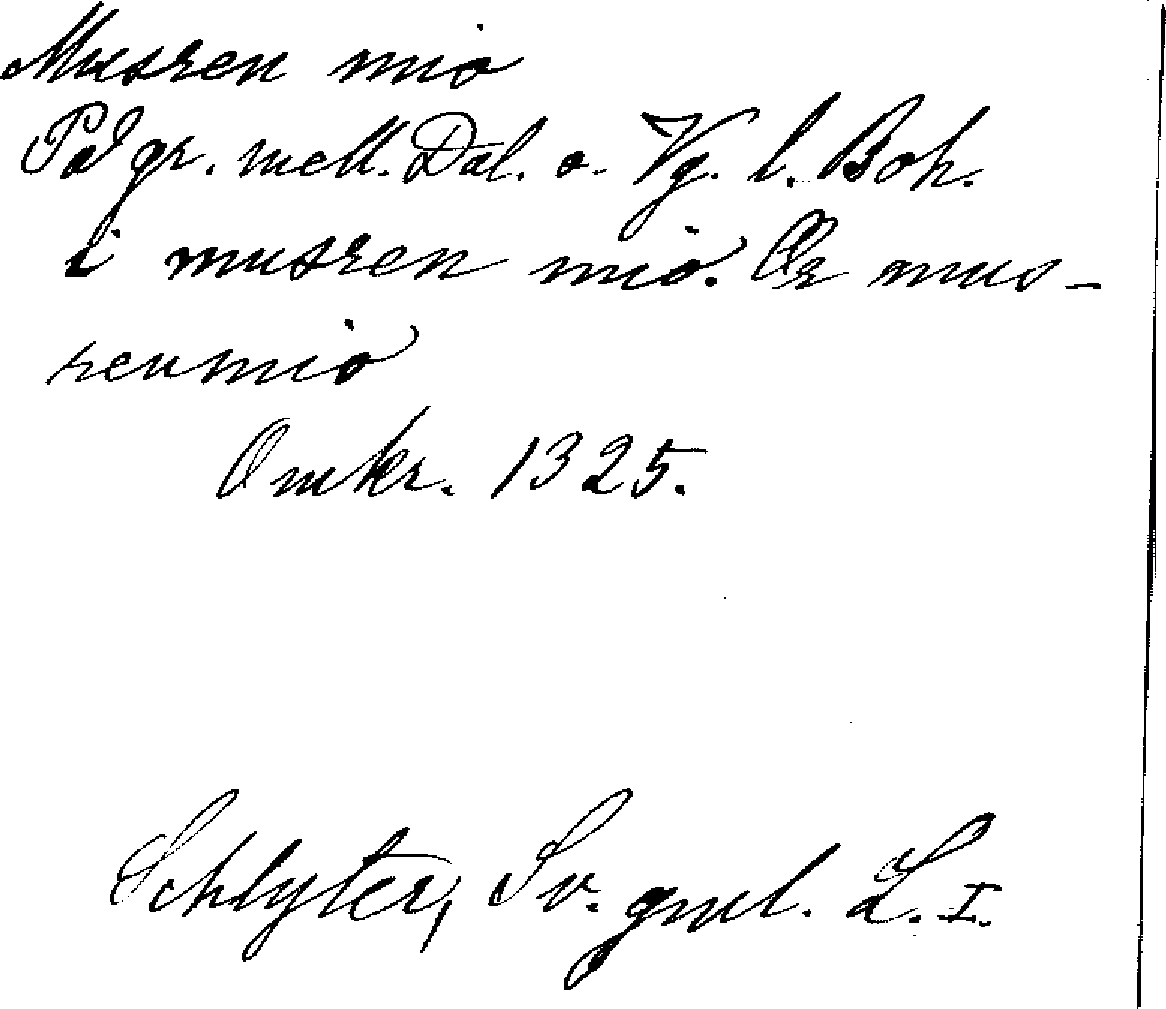 Musren mio
På gr. mell. Dal. o. Vg. l. Boh.
i musren mio. Or mus-
renmio
Omkr. 1325.
Schlyter, Sv. gml. L. I.